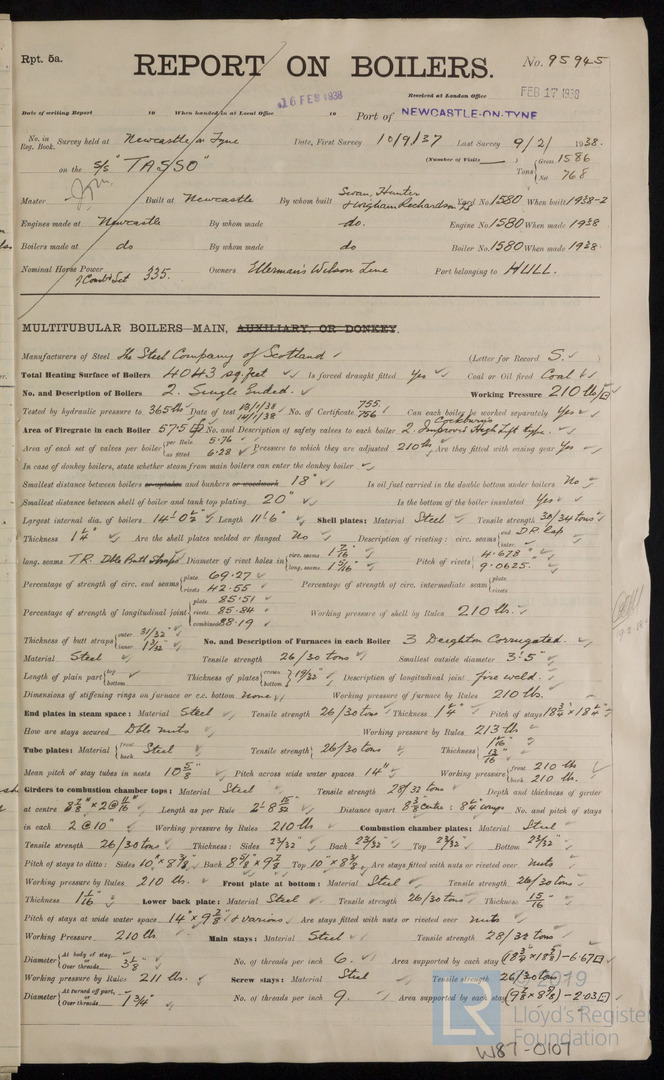 Rpt. 5a.
REPORT ON BOILERS.
No. 95945
16 FEB 1938
Received at London Office FEB 17 1938
Date of writing Report 19 When handed in at Local Office 19 Port of NEWCASTLE-ON-TYNE
No. in Reg. Book. Survey held at Newcastle on Tyne Date, First Survey 10/9/37 Last Survey 9/2/ 1938.
(Number of Visits )
on the S/S "TASSO" Tons { Gross 1586 Net 768
Master Built at Newcastle By whom built Swan, Hunter & Wigham Richardson Ld Yard No. 1580 When built 1938-2
Engines made at Newcastle By whom made do. Engine No. 1580 When made 1938
Boilers made at do By whom made do Boiler No. 1580 When made 1938
Nominal Horse Power 335. Owners Ellerman's Wilson Line Port belonging to HULL.
MULTITUBULAR BOILERS—MAIN, AUXILIARY, OR DONKEY.
Manufacturers of Steel The Steel Company of Scotland (Letter for Record S.)
Total Heating Surface of Boilers 4043 sq. feet Is forced draught fitted Yes Coal or Oil fired Coal
No. and Description of Boilers 2. Single Ended. Working Pressure 210 lbs/□
Tested by hydraulic pressure to 365 lbs Date of test 13/1/38 14/1/38 No. of Certificate 755. 756 Can each boiler be worked separately Yes
Area of Firegrate in each Boiler 57.5 □ No. and Description of safety valves to each boiler 2. Cockburns Improved High Lift type.
Area of each set of valves per boiler { per Rule 5.76 as fitted 6.28 Pressure to which they are adjusted 210 lbs Are they fitted with easing gear Yes
In case of donkey boilers, state whether steam from main boilers can enter the donkey boiler
Smallest distance between boilers or uptakes and bunkers or woodwork 18" Is oil fuel carried in the double bottom under boilers No
Smallest distance between shell of boiler and tank top plating 20" Is the bottom of the boiler insulated Yes
Largest internal dia. of boilers 14'-0½" Length 11'-6" Shell plates: Material Steel Tensile strength 30/34 tons
Thickness 1¼" Are the shell plates welded or flanged No Description of riveting: circ. seams { end DR lap inter.
long. seams TR. Dble Butt Straps Diameter of rivet holes in { circ. seams 1 7/16" long. seams 1 5/16" Pitch of rivets { 4.678" 9.0625.
Percentage of strength of circ. end seams { plate 69.27 rivets 42.55 Percentage of strength of circ. intermediate seam { plate rivets
Percentage of strength of longitudinal joint { plate 85.51 rivets 85.84 combined 88.19 Working pressure of shell by Rules 210 lbs.
Thickness of butt straps { outer 31/32" inner 1 1/32" No. and Description of Furnaces in each Boiler 3 Deighton Corrugated.
Material Steel Tensile strength 26/30 tons Smallest outside diameter 3'-5"
Length of plain part { top bottom Thickness of plates { crown bottom } 19/32" Description of longitudinal joint fire weld.
Dimensions of stiffening rings on furnace or c.c. bottom none Working pressure of furnace by Rules 210 lbs.
End plates in steam space: Material Steel Tensile strength 26/30 tons Thickness 1¼" Pitch of stays 18¾" x 18¼"
How are stays secured Dble nuts Working pressure by Rules 213 lbs
Tube plates: Material { front back Steel Tensile strength { 26/30 tons Thickness { 1 1/16" 13/16"
Mean pitch of stay tubes in nests 10 5/8 Pitch across wide water spaces 14" Working pressure { front 210 lbs back 210 lbs.
Girders to combustion chamber tops: Material Steel Tensile strength 28/32 tons Depth and thickness of girder
at centre 8 7/8" x 2@ 11/16" Length as per Rule 2'-8 15/32" Distance apart 8 3/8 centre: 8¼" wings No. and pitch of stays
in each 2 @ 10" Working pressure by Rules 210 lbs Combustion chamber plates: Material Steel
Tensile strength 26/30 tons Thickness: Sides 23/32" Back 23/32" Top 23/32" Bottom 23/32"
Pitch of stays to ditto: Sides 10" x 8 3/8" Back 8 5/8" x 9 7/8 Top 10" x 8 3/8 Are stays fitted with nuts or riveted over nuts
Working pressure by Rules 210 lbs. Front plate at bottom: Material Steel Tensile strength 26/30 tons
Thickness 1 1/16" Lower back plate: Material Steel Tensile strength 26/30 tons Thickness 15/16"
Pitch of stays at wide water space 14" x 9 7/8" & various Are stays fitted with nuts or riveted over nuts
Working Pressure 210 lbs Main stays: Material Steel Tensile strength 28/32 tons
Diameter { At body of stay, or Over threads 3 1/8" No. of threads per inch 6. Area supported by each stay (18¾" x 18 5/8") - 6.67 □
Working pressure by Rules 211 lbs. Screw stays: Material Steel Tensile strength 26/30 tons
Diameter { At turned off part, or Over threads 1¾" No. of threads per inch 9. Area supported by each stay (9 7/8" x 8 5/8") - 2.03 □
© 2019
LR Lloyd's Register Foundation
W87-0107